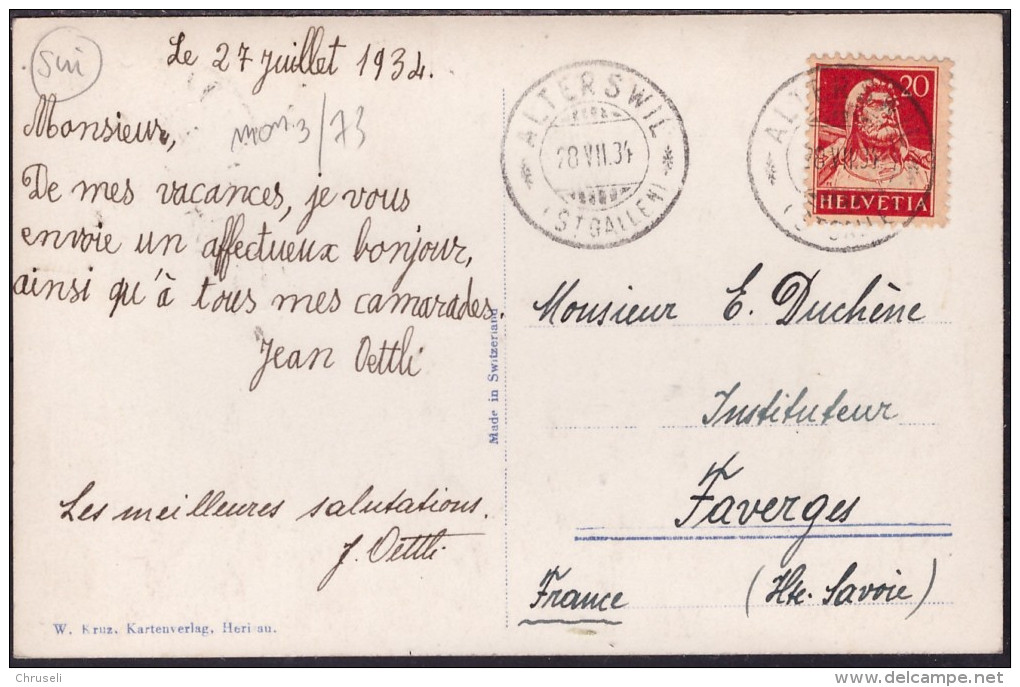 Sui
Le 27 Juillet 1934.
Monsieur,
mon 3/73
De mes vacances, je vous
envoie un affectueux bonjour,
ainsi qu'à tous mes camarades.
Jean Oettli
Les meilleures salutations.
J. Oettli
W. Kruz, Kartenverlag, Herisau.
Made in Switzerland
ALTERSWIL
28.VII.34
(ST.GALLEN)
20
HELVETIA
Monsieur E. Duchêne
Instituteur
Faverges
(Hte. Savoie)
France
Chruseli